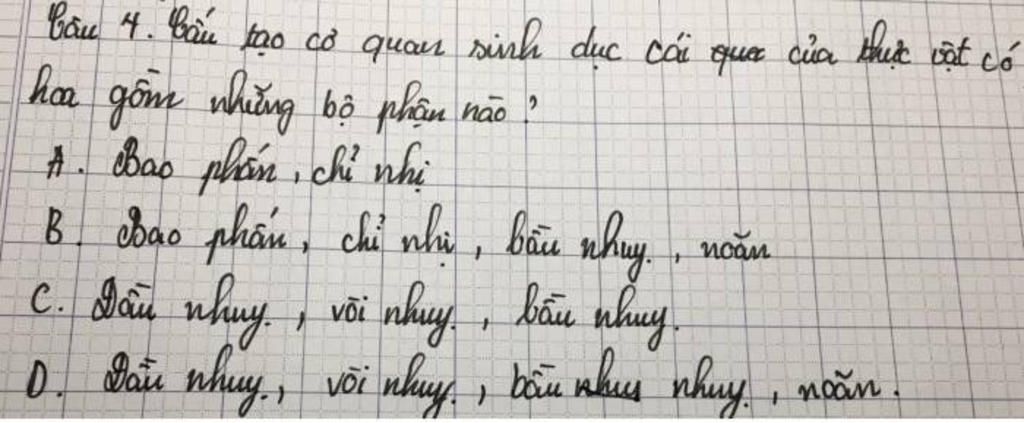 Câu 4. Cấu tạo cơ quan sinh dục cái của thực vật có
hoa gồm những bộ phận nào?
A. Bao phấn, chỉ nhị
B. Bao phấn, chỉ nhị, bầu nhuỵ, noãn
C. Đầu nhuỵ, vòi nhuỵ, bầu nhuỵ.
D. Đầu nhuỵ, vòi nhuỵ, bầu nhuỵ, noãn.